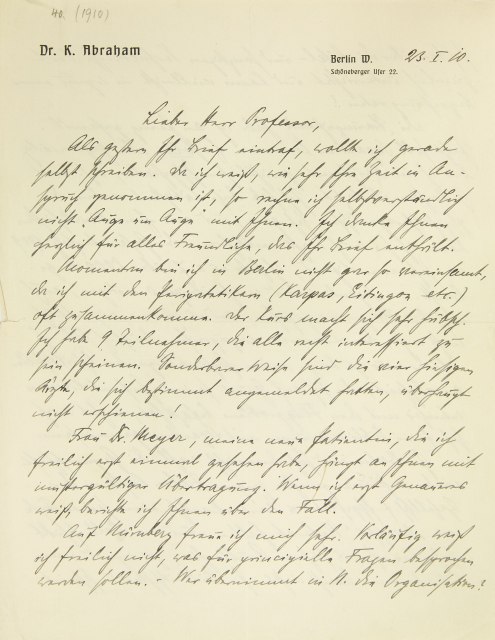 40. (1910)
Dr. K. Abraham
Berlin W. 23. I. 10.
Schöneberger Ufer 22.
Lieber Herr Professor,
Als gestern Ihr Brief eintraf, wollte ich gerade
selbst schreiben. Da ich weiß, wie sehr Ihre Zeit in An-
spruch genommen ist, so rechne ich selbstverständlich
nicht „Auge um Auge“ mit Ihnen. Ich danke Ihnen
herzlich für alles Freundliche, das Ihr Brief enthält.
Momentan bin ich in Berlin nicht gar so vereinsamt,
da ich mit den Peripatetikern (Karpas, Eitingon etc.)
oft zusammenkomme. Der Kurs macht sich sehr hübsch.
Ich habe 9 Teilnehmer, die alle recht interessiert zu
sein scheinen. Sonderbarer Weise sind die vier hiesigen
Ärzte, die sich bestimmt angemeldet hatten, überhaupt
nicht erschienen!
Frau Dr. Meyer, meine neue Patientin, die ich
freilich erst einmal gesehen habe, hängt an Ihnen mit
mustergültiger Übertragung. Wenn ich erst Genaueres
weiß, berichte ich Ihnen über den Fall.
Auf Nürnberg freue ich mich sehr. Vorläufig weiß
ich freilich nicht, was für principielle Fragen besprochen
werden sollen. – Wer übernimmt in N. die Organisation?